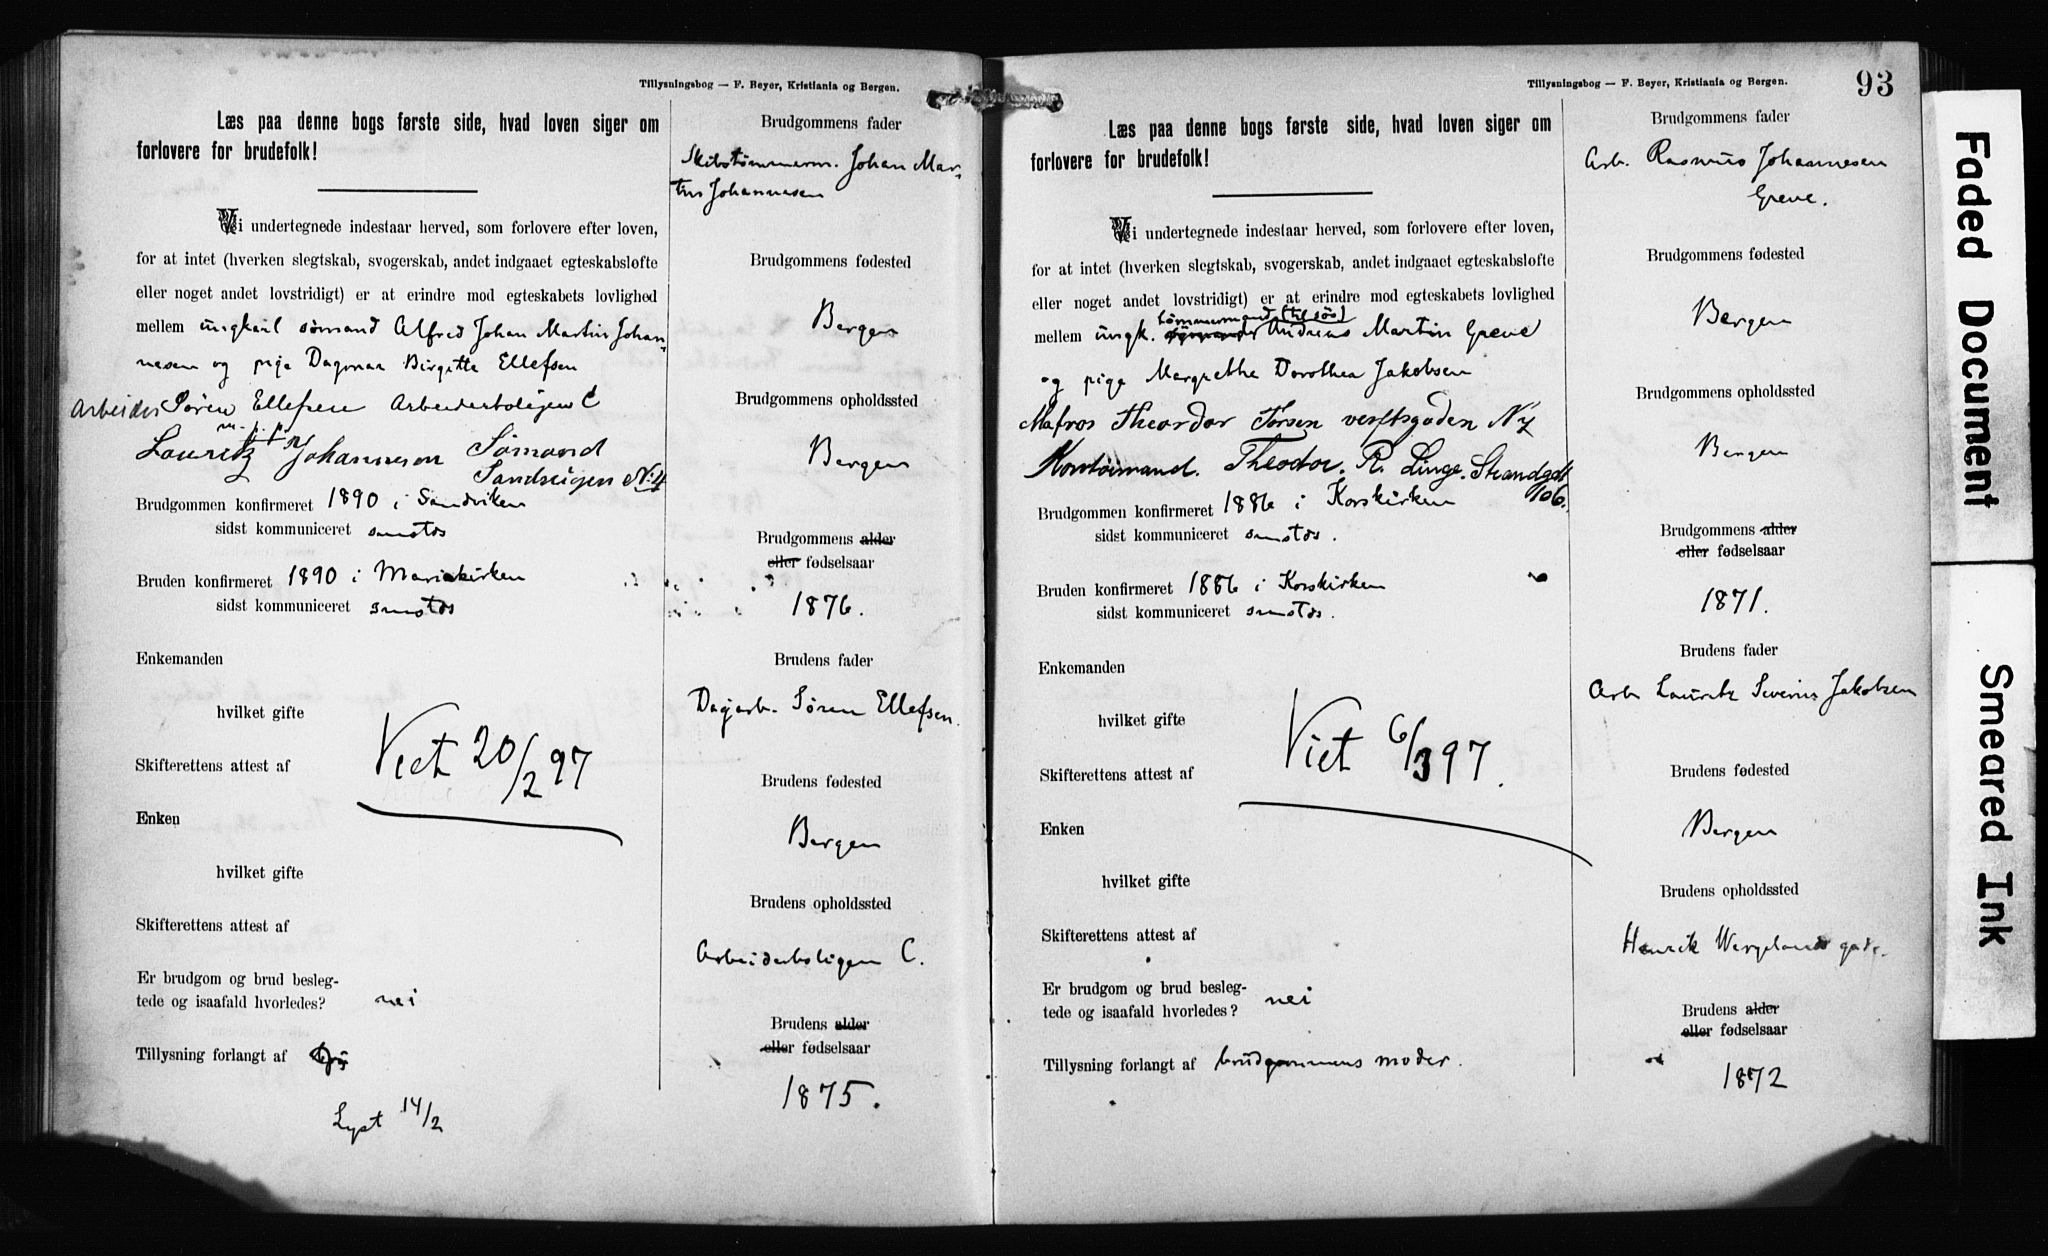 Tillysningsbog — F. Beyer, Kristiania og Bergen.
Læs paa denne bogs første side, hvad loven siger om
forlovere for brudefolk!
Vi undertegnede indestaar herved, som forlovere efter loven,
for at intet (hverken slegtskab, svogerskab, andet indgaaet egteskabsløfte
eller noget andet lovstridigt) er at erindre mod egteskabets lovlighed
mellem ungkarl sømand Alfred Johan Martin Johan-
nesen og pige Dagmar Birgitte Ellefsen
Arbeider Søren Ellefsen Arbeiderboligen C
m. p. p.
Lauritz Johannesen Sømand
Sandvigen N:4
Brudgommen konfirmeret 1890 i Sandviken
sidst kommuniceret smstds
Bruden konfirmeret 1890 i Mariakirken
sidst kommuniceret smstds
Enkemanden
hvilket gifte
Skifterettens attest af
Viet 20/2 97
Enken
hvilket gifte
Skifterettens attest af
Er brudgom og brud besleg-
tede og isaafald hvorledes? nei
Tillysning forlangt af
Lyst 14/2
Brudgommens fader
Skibstømmerm. Johan Mar-
tin Johannesen
Brudgommens fødested
Bergen
Brudgommens opholdssted
Bergen
Brudgommens alder
eller fødselsaar
1876.
Brudens fader
Dagarb. Søren Ellefsen.
Brudens fødested
Bergen
Brudens opholdssted
Arbeiderboligen C.
Brudens alder
eller fødselsaar
1875.
Tillysningsbog — F. Beyer, Kristiania og Bergen.
93
Læs paa denne bogs første side, hvad loven siger om
forlovere for brudefolk!
Vi undertegnede indestaar herved, som forlovere efter loven,
for at intet (hverken slegtskab, svogerskab, andet indgaaet egteskabsløfte
eller noget andet lovstridigt) er at erindre mod egteskabets lovlighed
tømmermand (til søs)
mellem ungk. Andreas Martin Greve
og pige Margrethe Dorothea Jakobsen
Matros Theordor Torsen verftsgaden N7
Kontormand. Theodor R. Linge. Strandgdt
106.
Brudgommen konfirmeret 1886 i Korskirken
sidst kommuniceret smstds.
Bruden konfirmeret 1886 i Korskirken
sidst kommuniceret smstds.
Enkemanden
hvilket gifte
Skifterettens attest af
Viet 6/3 97.
Enken
hvilket gifte
Skifterettens attest af
Er brudgom og brud besleg-
tede og isaafald hvorledes? nei
Tillysning forlangt af brudgommens moder.
Brudgommens fader
Arb. Rasmus Johannesen
Greve.
Brudgommens fødested
Bergen
Brudgommens opholdssted
Bergen
Brudgommens alder
eller fødselsaar
1871.
Brudens fader
Arb Lauritz Severin Jakobsen
Brudens fødested
Bergen
Brudens opholdssted
Henrik Wergelands gade.
Brudens alder
eller fødselsaar
1872
Faded Document
Smeared Ink